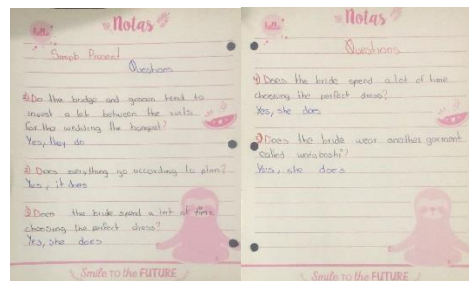 hello
Notas
Simple Present
Questions
1) Do the bridge and groom tend to
invest a lot between the
for the wedding the banquet?
Yes, they do
2) Does everything go according to plan?
Yes, it does
3) Does the bride spend a lot of time
choosing the perfect dress?
Yes, she does
Smile TO the FUTURE
hello
Notas
Questions
4) Does the bride spend a lot of time
choosing the perfect dress?
Yes, she does
Does the bride wear another garment
called
Yes, she does
Smile TO the FUTURE